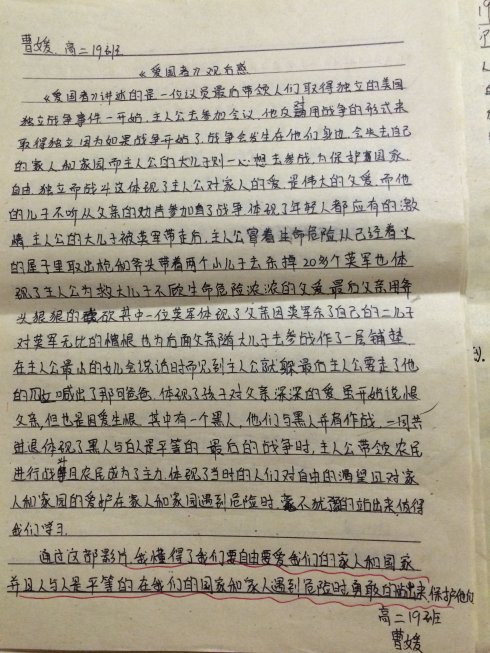 曹媛 高二19班
《爱国者》观后感
《爱国者》讲述的是一位议员最后带领人们取得独立的美国
独立战争事件一开始,主人公去参加会议,他反对用战争的形式来
取得独立因为如果战争开始了,战争会发生在他们身边,会失去自己
的家人和家园而主人公的大儿子则一心想去参战为保护国家
自由,独立而战斗这体现了主人公对家人的爱是伟大的父爱,而他
的儿子不听从父亲的劝告参加了战争,体现了年轻人都应有的激
情,主人公的大儿子被英军带走后,主人公冒着生命危险从已经着火
的屋子里取出枪和斧头带着两个小儿子去杀掉20多个英军也体
现了主人公为救大儿子不顾生命危险浓浓的父爱最后父亲用斧
头狠狠的砍其中一位英军体现了父亲因英军杀了自己的二儿子
对英军无比的憎恨也为后面父亲随大儿子去参战作了一层铺垫
在主人公最小的女儿会说话时而见到主人公就躲最后主人公要走了他
的女喊出了那句爸爸,体现了孩子对父亲深深的爱,虽开始说恨
父亲,但也是因爱生恨,其中有一个黑人,他们与黑人并肩作战,一同共
进退体现了黑人与白人是平等的,最后的战争时,主人公带领农民
进行战斗且农民成为了主力,体现了当时的人们对自由的渴望且对家
人和家园的爱护在家人和家园遇到危险时,毫不犹豫的站出来值得
我们学习.
通过这部影片,我懂得了我们要自由要爱我们的家人和国家
并且人与人是平等的在我们的国家和家人遇到危险时,勇敢的站出来,保护他们
高二19班
曹媛